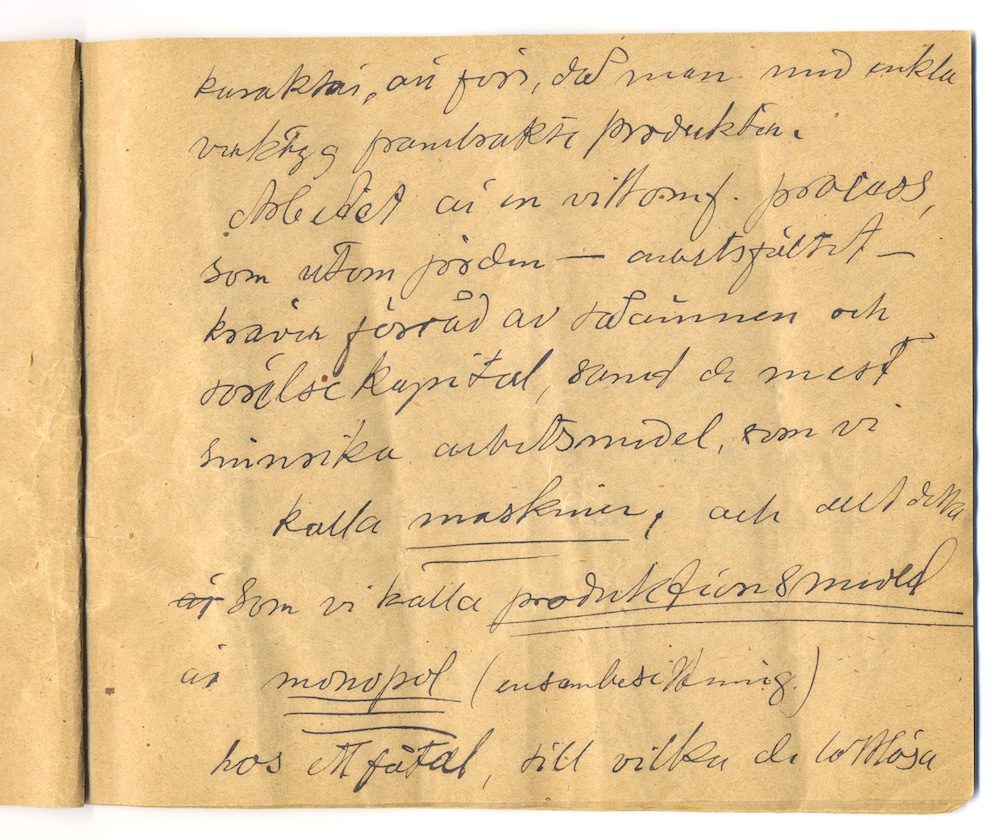 karaktär, än förr, då man med enkla
verktyg frambrakte produkten.
Arbetet är en vittomf. process,
som utom jorden — arbetsfältet —
kräver förråd av råämnen och
rörelsekapital, samt de mest
sinnrika arbetsmedel, som vi
kalla maskiner, och allt detta
är som vi kalla produktionsmedel
är monopol (ensambesittning.)
hos ett fåtal, till vilka de lottlösa